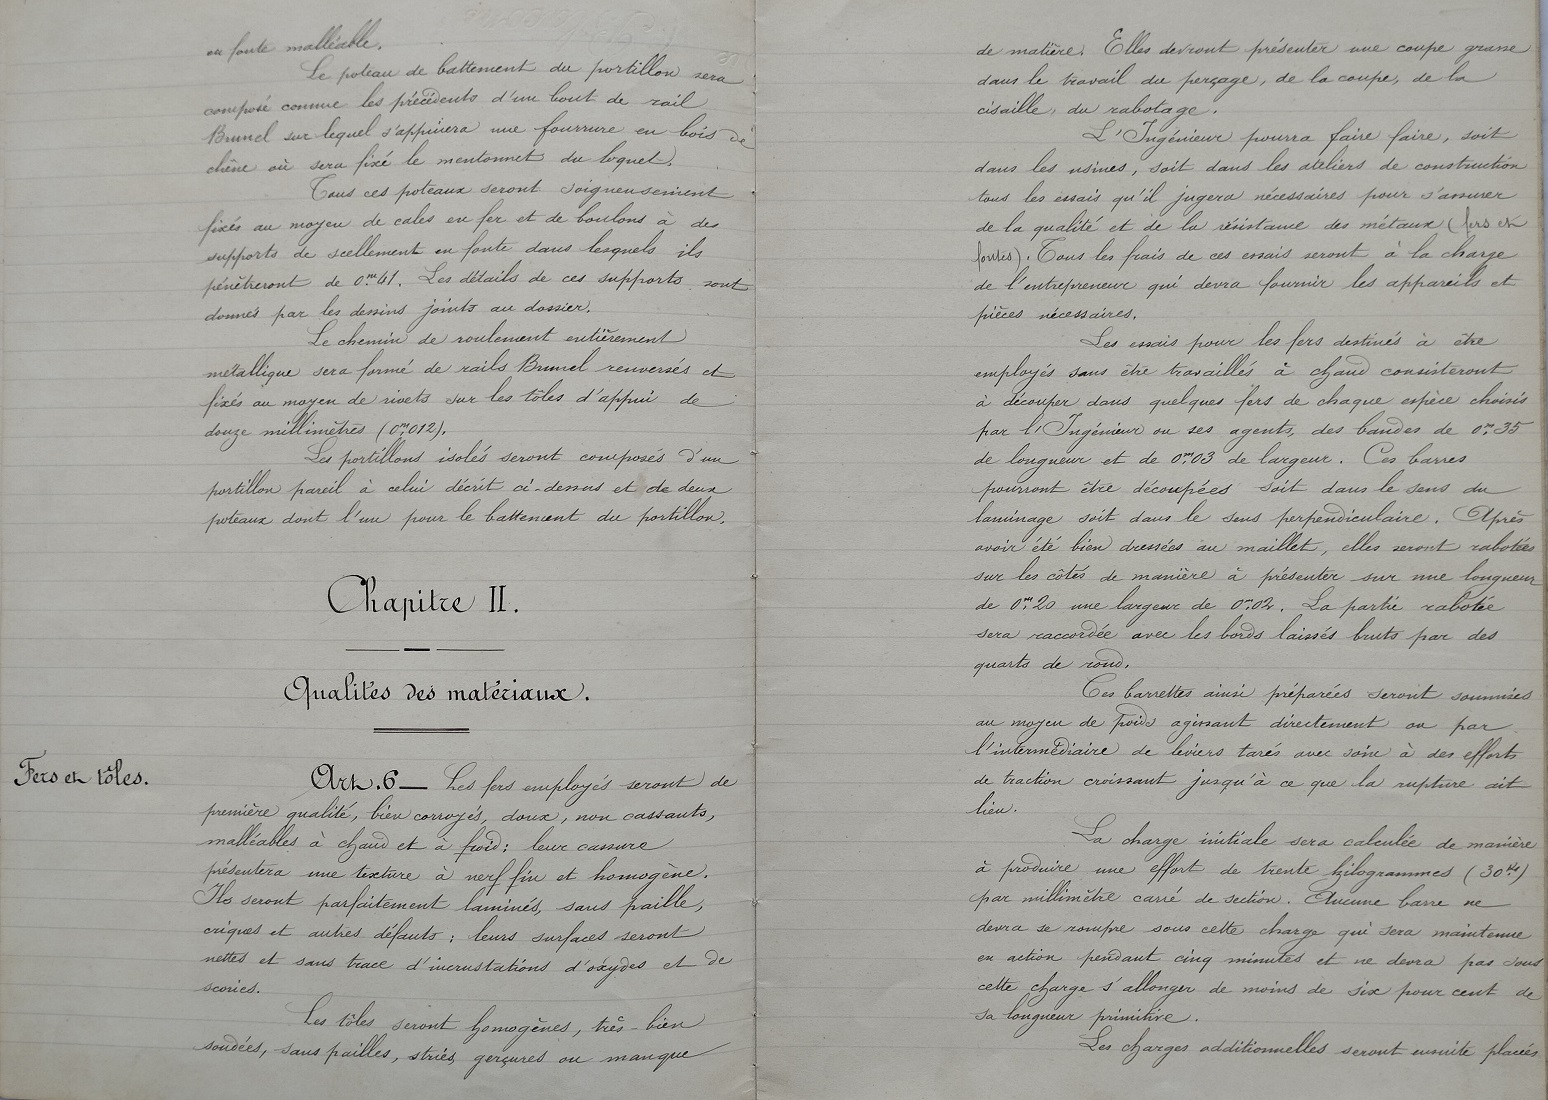 en fonte malléable.
Le poteau de battement du portillon sera
composé comme les précédents d'un bout de rail
Brunel sur lequel s'appuiera une fourrure en bois de
chêne où sera fixé le mentonnet du loquet.
Tous ces poteaux seront soigneusement
fixés au moyen de cales en fer et de boulons à des
supports de scellement en fonte dans lesquels ils
pénètreront de 0m41. Les détails de ces supports sont
donnés par les dessins joints au dossier.
Le chemin de roulement entièrement
métallique sera formé de rails Brunel renversés et
fixés au moyen de rivets sur les tôles d'appui de
douze millimètres (0m,012).
Les portillons isolés seront composés d'un
portillon pareil à celui décrit ci-dessus et de deux
poteaux dont l'un pour le battement du portillon.
Chapitre II.
Qualités des matériaux.
Fers et tôles.
Art. 6 — Les fers employés seront de
première qualité, bien corroyés, doux, non cassants,
malléables à chaud et à froid; leur cassure
présentera une texture à nerf fin et homogène.
Ils seront parfaitement laminés, sans paille,
criques et autres défauts; leurs surfaces seront
nettes et sans trace d'incrustations d'oxydes et de
scories.
Les tôles seront homogènes, très-bien
soudées, sans pailles, striés, gerçures ou manque
de matière. Elles devront présenter une coupe grasse
dans le travail du perçage, de la coupe, de la
cisaille, du rabotage.
L'Ingénieur pourra faire faire, soit
dans les usines, soit dans les ateliers de construction
tous les essais qu'il jugera nécessaires pour s'assurer
de la qualité et de la résistance des métaux (fers et
fontes). Tous les frais de ces essais seront à la charge
de l'entrepreneur qui devra fournir les appareils et
pièces nécessaires.
Les essais pour les fers destinés à être
employés sans être travaillés à chaud consisteront
à découper dans quelques fers de chaque espèce choisis
par l'Ingénieur ou ses agents, des bandes de 0m,35
de longueur et de 0m,03 de largeur. Ces barres
pourront être découpées soit dans le sens du
laminage soit dans le sens perpendiculaire. Après
avoir été bien dressées au maillet, elles seront rabotées
sur les côtés de manière à présenter sur une longueur
de 0m,20 une largeur de 0m,02. La partie rabotée
sera raccordée avec les bords laissés bruts par des
quarts de rond.
Ces barrettes ainsi préparées seront soumises
au moyen de poids agissant directement ou par
l'intermédiaire de leviers tarés avec soin à des efforts
de traction croissant jusqu'à ce que la rupture ait
lieu.
La charge initiale sera calculée de manière
à produire une effort de trente kilogrammes (30 Ks)
par millimètre carré de section. Aucune barre ne
devra se rompre sous cette charge qui sera maintenue
en action pendant cinq minutes et ne devra pas sous
cette charge s'allonger de moins de six pour cent de
sa longueur primitive.
Les charges additionnelles seront ensuite placées